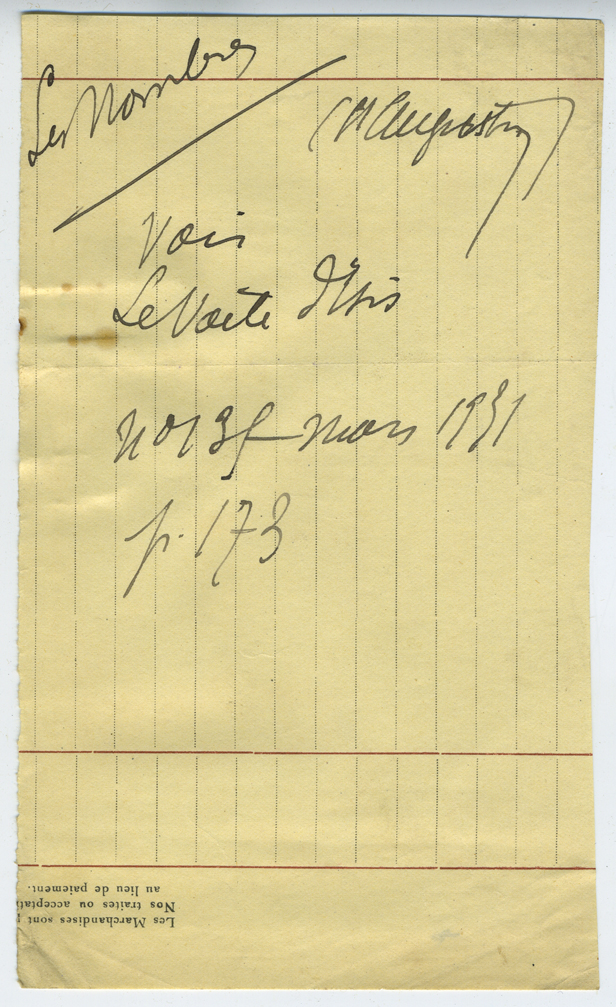 Les Nombres
(St Augustin)
Voir
Le Voile d'Isis
No 135 mars 1931
p. 173
Les Marchandises sont
Nos traites ou acceptat
au lieu de paiement.